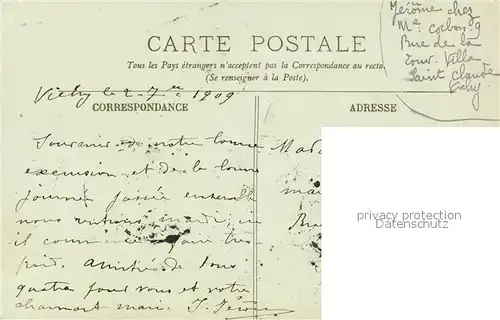 Jérôme chez
Me Corbon 9
Rue de la
Tour. Villa
Saint Claude
Vichy
CARTE POSTALE
Tous les Pays étrangers n'acceptent pas la Correspondance au recto.
(Se renseigner à la Poste).
Vichy le 2 7re 1909
CORRESPONDANCE
ADRESSE
Souvenir de notre bonne
excursion et de la bonne
journée passée ensemble
nous rentrons mardi, car
il commence à faire très
froid. Amitiés de tous
quatre pour vous et votre
charmant mari. J.
privacy protection
Datenschutz